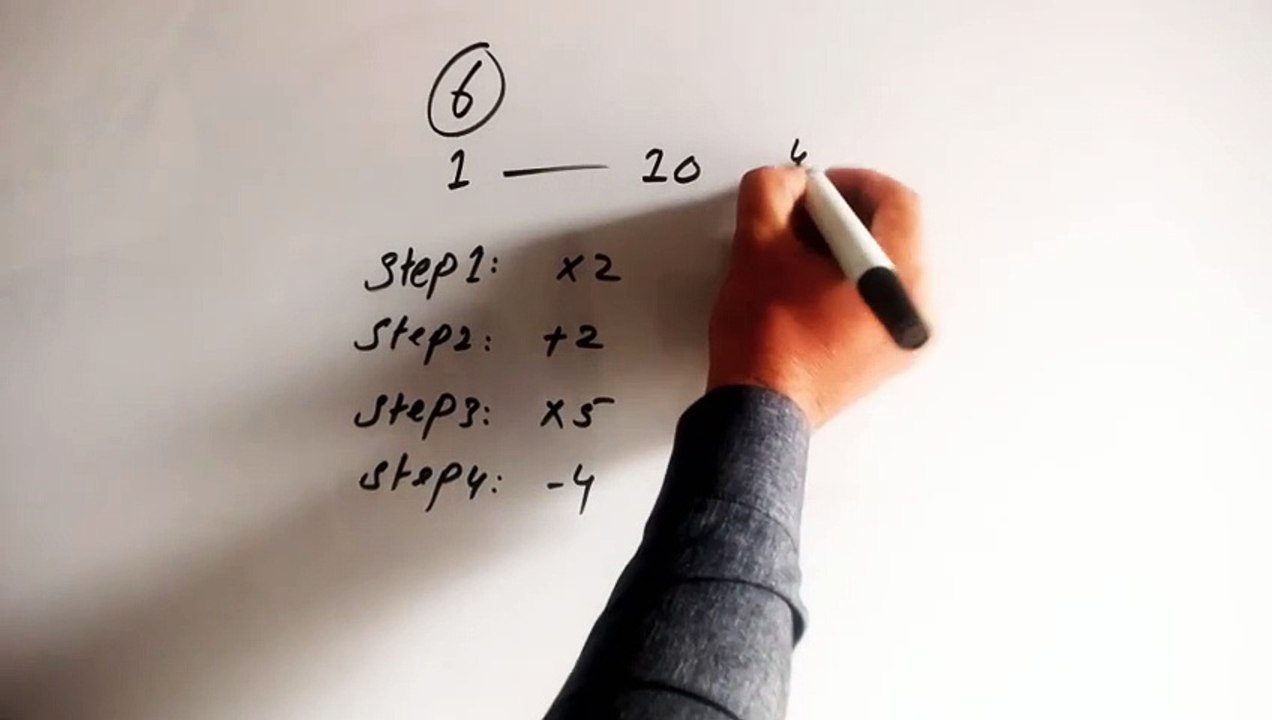 6
1 — 10 4
Step1: ×2
Step2: +2
Step3: ×5
Step4: -4